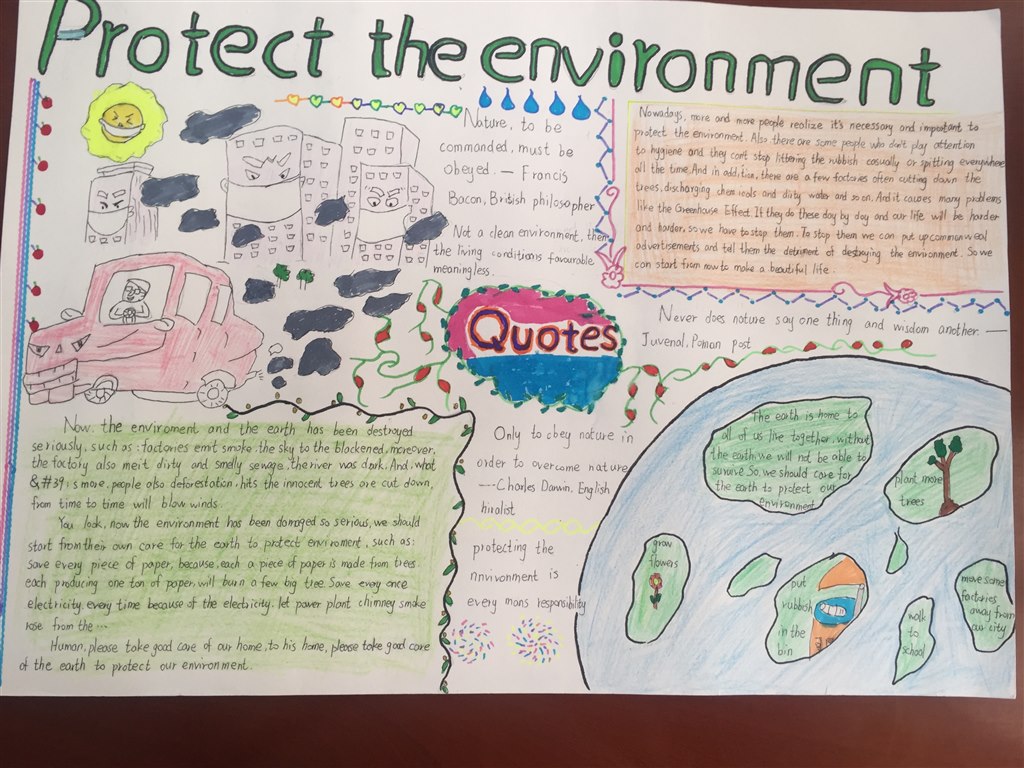 Protect the environment
Nature, to be
commanded, must be
obeyed. — Francis
Bacon, British philosopher
Not a clean environment, then
the living conditionis favourable
meaningless.
Nowadays, more and more people realize it's necessary and important to
protect the environment. Also there are some people who don't play attention
to hygiene and they can't stop littering the rubbish casually or spitting everywhere
all the time. And in addition, there are a few factories often cutting down the
trees, discharging chemicals and dirty water and so on. And it causes many problems
like the Greenhouse Effect. If they do these day by day and our life will be harder
and harder, so we have to stop them. To stop them we can put up commonweal
advertisements and tell them the detriment of destroying the environment. So we
can start from now to make a beautiful life.
Quotes
Never does nature say one thing and wisdom another. —
Juvenal, Poman post
Now, the enviroment and the earth has been destroyed
seriously, such as: factories emit smoke, the sky to the blackened, moreover,
the factory also meit dirty and smelly sewage, the river was dark. And, what
&#39; s more, people also deforestation, hits the innocent trees are cut down,
from time to time will blow winds.
You look, now the environment has been damaged so serious, we should
start from their own care for the earth to protect enviroment, such as:
save every piece of paper, because, each a piece of paper is made from trees.
each producing one ton of paper, will burn a few big tree. Save every once
electricity, every time because of the electricity, let power plant chimney smoke
rose from the ...
Human, please take good care of our home, to his home, please take good care
of the earth to protect our environment.
Only to obey nature in
order to overcome nature
--- Charles Darwin, English
hiralist
protecting the
nnvivonment is
every mans responsibility
The earth is home to
all of us live together, without
the earth, we will not be able to
survive. So, we should care for
the earth to protect our
environment
plant more
trees
grow
flowers
put
rubbish
in the
bin
walk
to
school
move some
factories
away from
our city